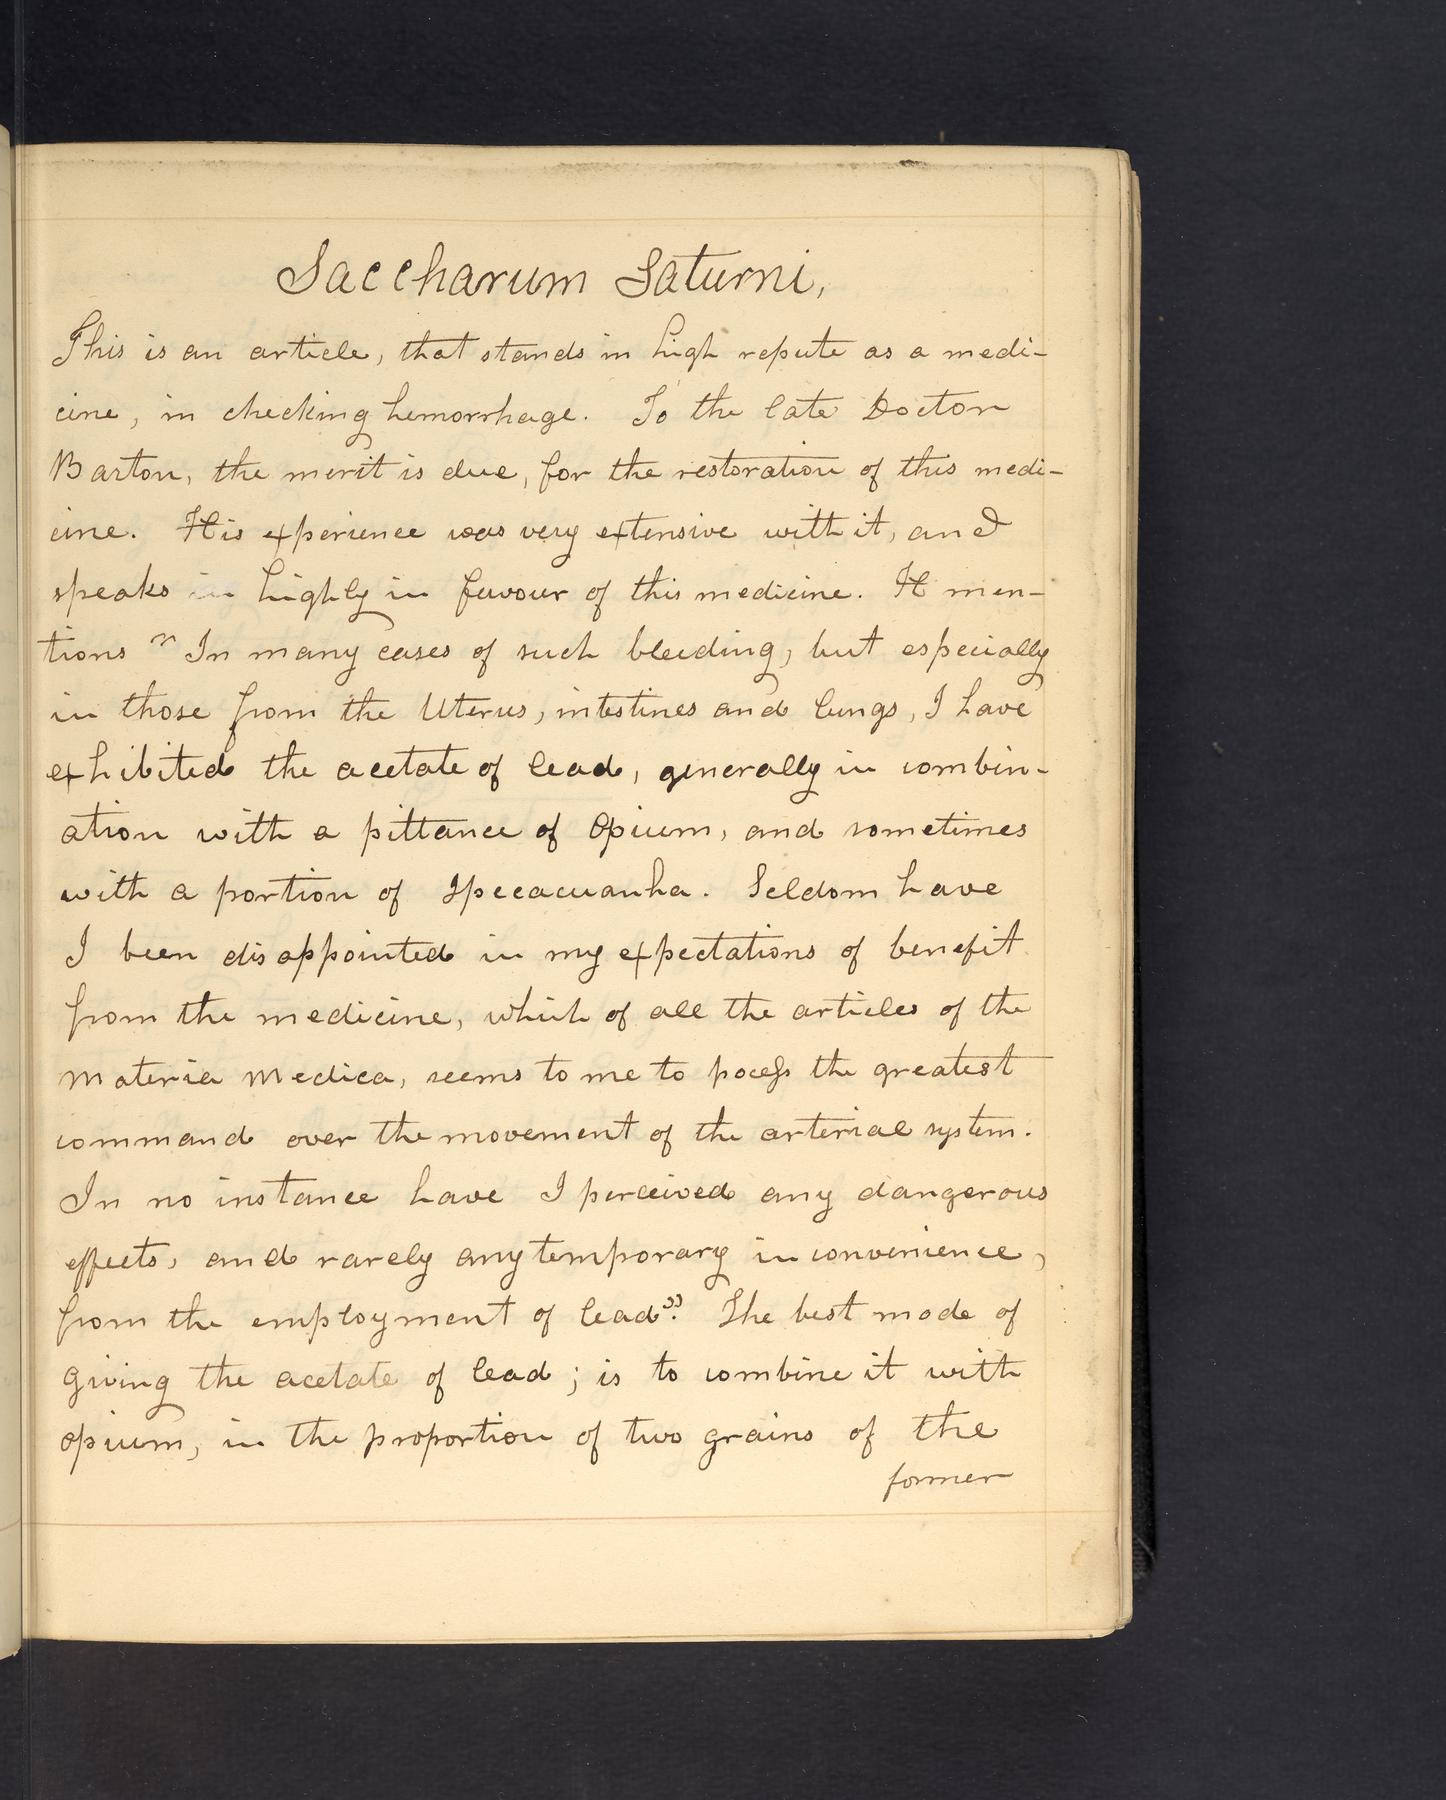 Saccharum Saturni,
This is an article, that stands in high repute as a medi-
cine, in checking hemorrhage. To the late Doctor
Barton, the merit is due, for the restoration of this medi-
cine. His experience was very extensive with it, and
speaks in highly in favour of this medicine. He men-
tions "In many cases of such bleeding, but especially
in those from the Uterus, intestines and lungs, I have
exhibited the acetate of lead, generally in combin-
ation with a pittance of Opium, and sometimes
with a portion of Ipecacuanha. Seldom have
I been disappointed in my expectations of benefit
from the medicine, which of all the articles of the
Materia Medica, seems to me to pocess the greatest
command over the movement of the arterial system.
In no instance have I perceived any dangerous
effects, and rarely any temporary inconvenience,
from the employment of lead". The best mode of
giving the acetate of lead; is to combine it with
opium, in the proportion of two grains of the
former